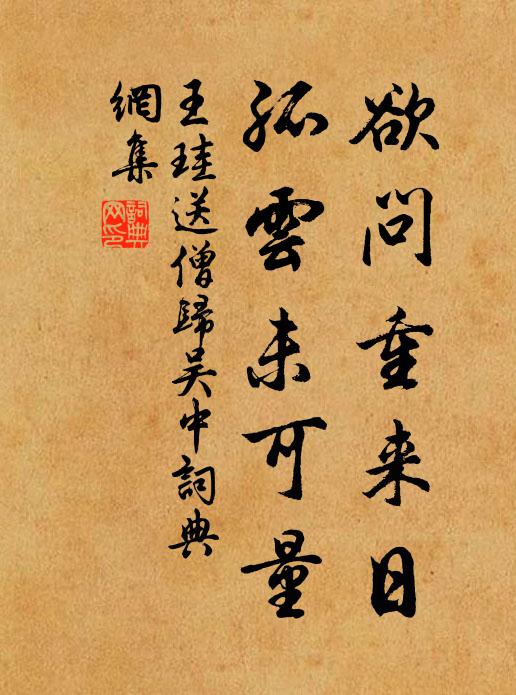 欲问重来日
孤雲未可量
王珪送僧歸吴中詞典
網集
詞典网印